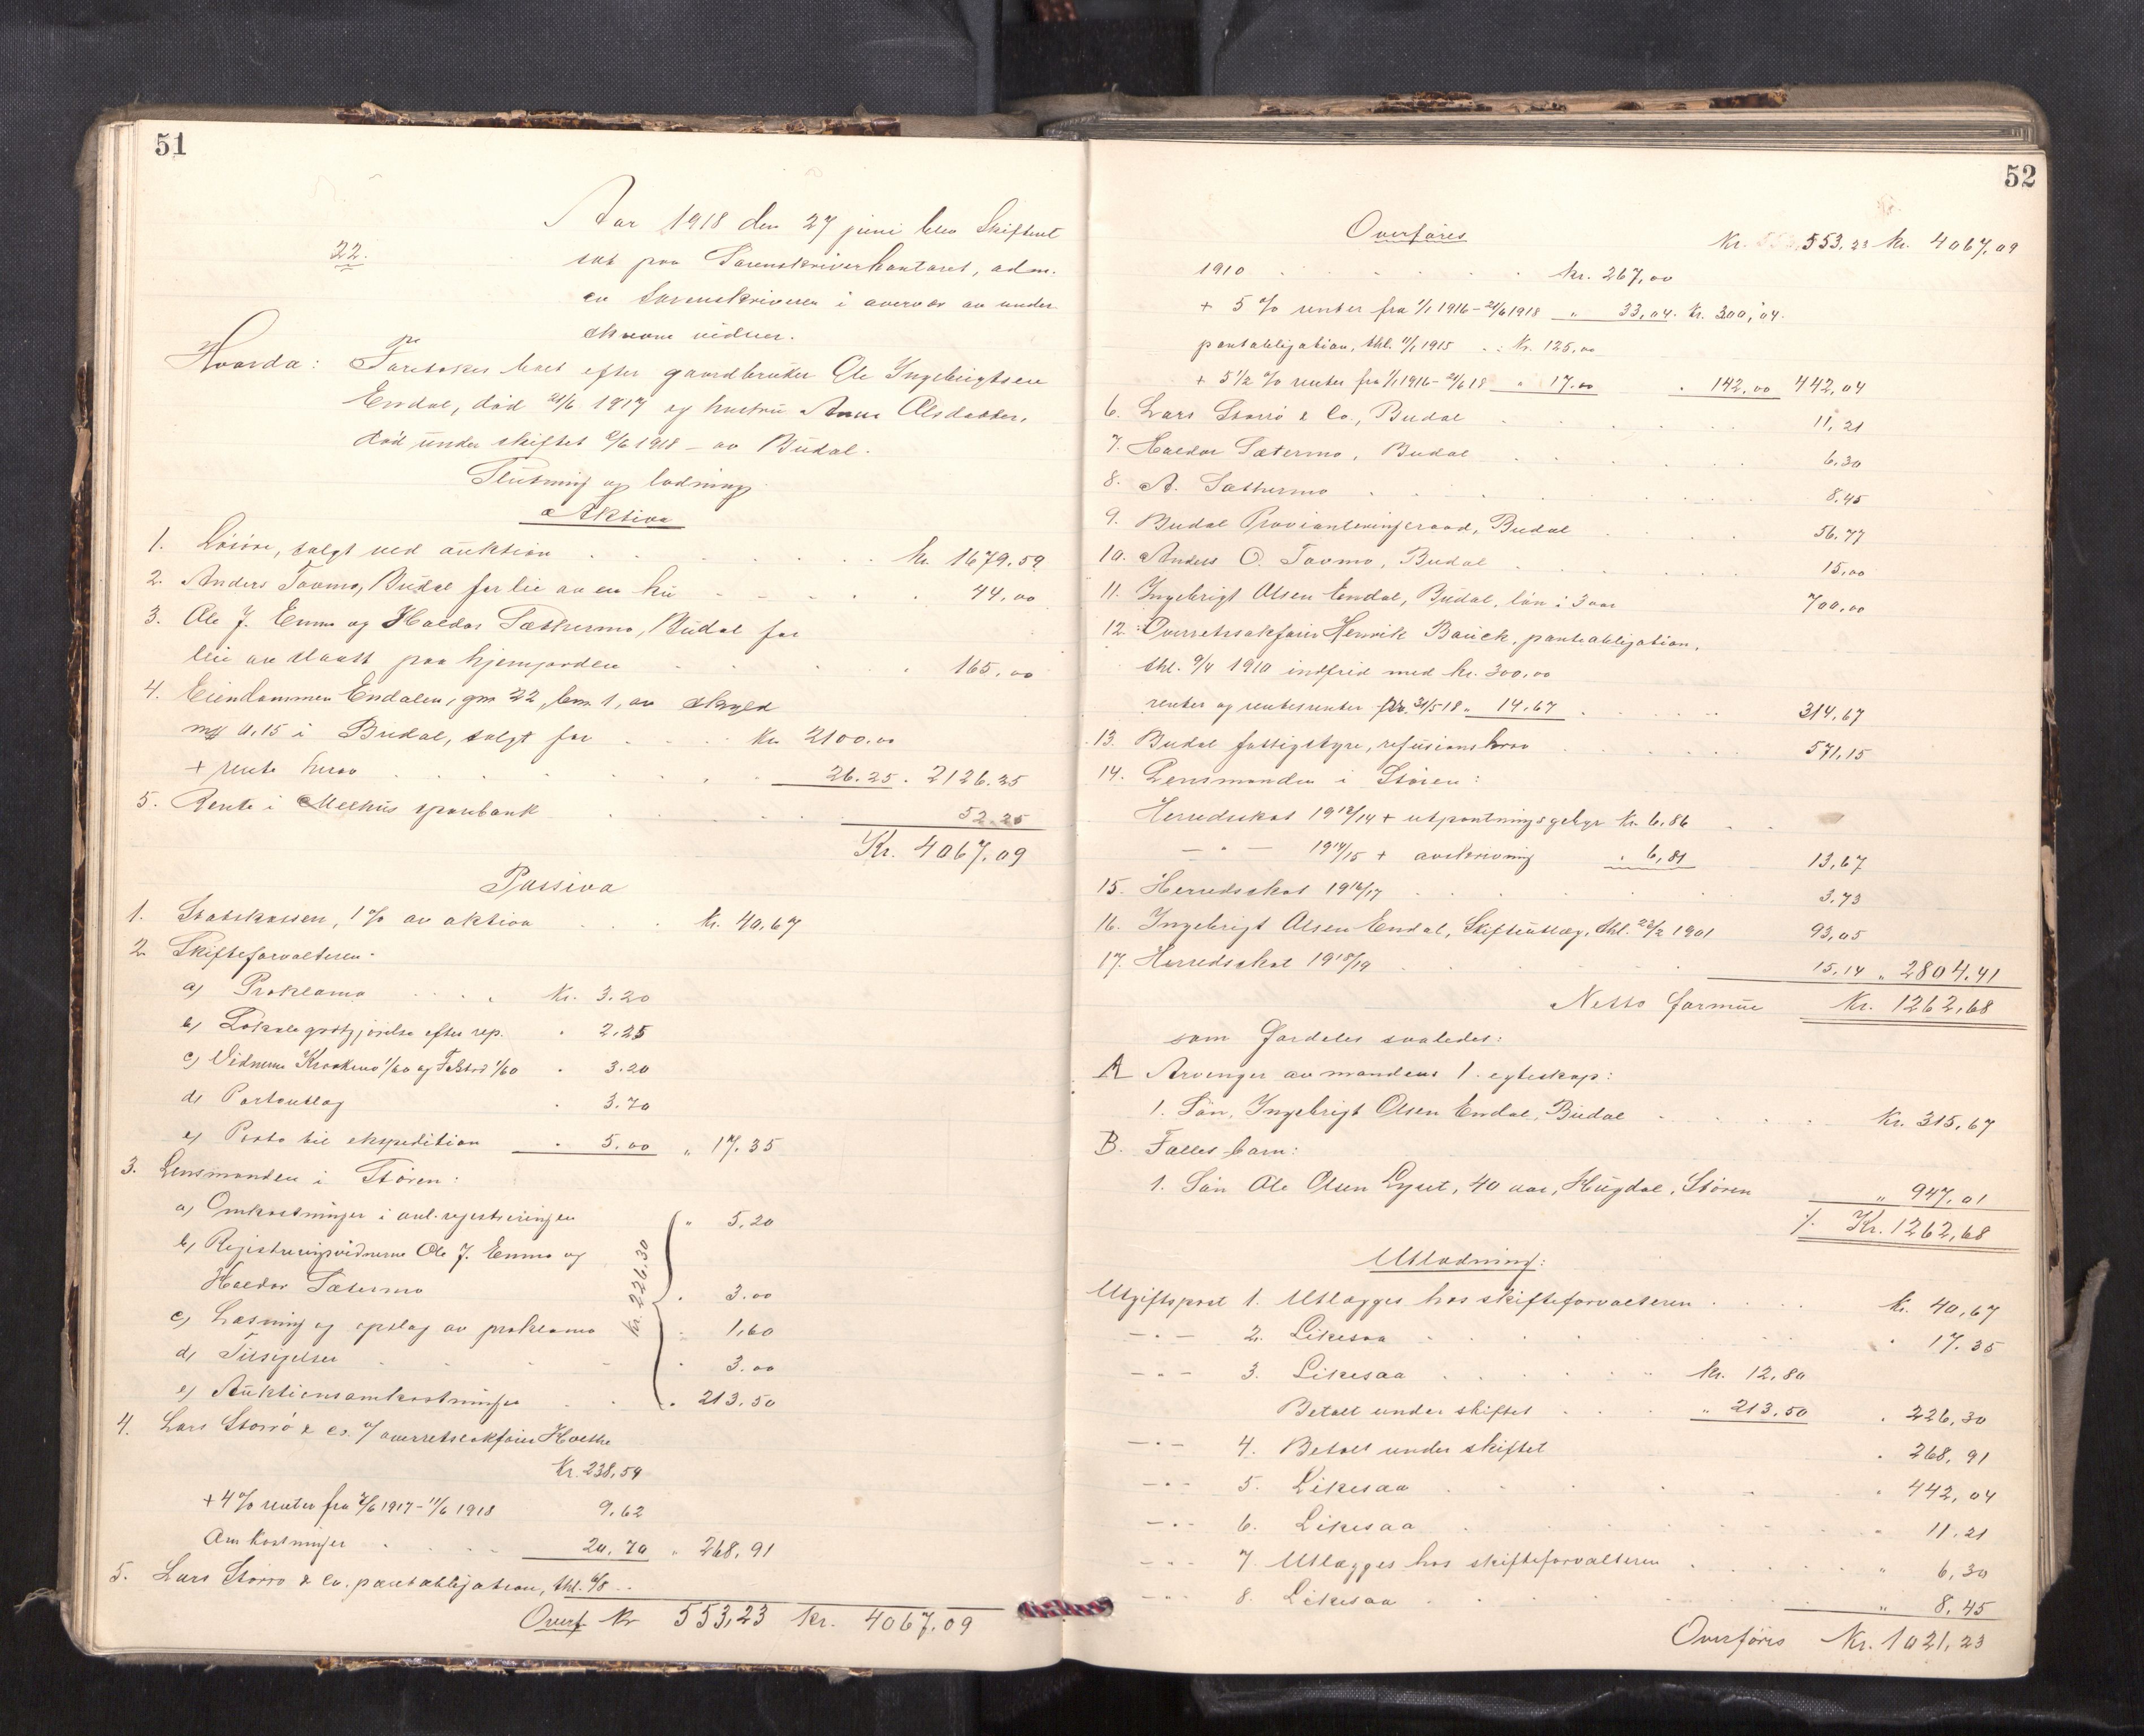 51
22.
Aar 1918 den 27 juni blev Skifteret
sat paa Sorenskriverkontoret, adm.
av Sorenskriveren i overvær av under-
skrevne vidner.
Hvorda:
Foretokes boet efter gaardbruker Ole Ingebrigtsen
Endal, död 21/6 1917 og hustru Anne Olsdatter,
död under skiftet 2/6 1918 – av Budal.
Slutning og lodning
Aktiva
1. Lösöre, solgt ved auktion . . . . . . kr. 1679.59
2. Anders Tovmo, Budal for leie av en ku - - - . . 44,00
3. Ole J. Enmo og Haldor Sæthermo, Budal for
leie av slaatt paa hjemjorden . . . 165,00
4. Eiendommen Endalen, gnr 22, bnr. 1, av skyld
mk 0,15 i Budal, solgt for . . . . Kr. 2100.00
+ rente herav . . . . . . 26.25 . 2126.25
5. Rente i Melhus sparebank . . . . . 52.25
Kr. 4067,09
Passiva
1. Statskassen, 1% av aktiva . . . Kr. 40,67
2. Skifteforvalteren:
a) Proklama . . . . Kr. 3.20
b) Lokalegodtgjörelse efter rep. . 2,25
c) Vidnerne Krokeno 1/60 og 1/60 . 3.20
d) Portoutlag . 3.70
e) Porto til ekspedition . 5,00 „ 17.35
3. Lensmanden i Stören:
a) Omkostninger i anl. registreringen „ 5,20
b) Registreringsvidnerne Ole J. Enmo og
Haldor Sætermo . 3.00
c) Læsning og opslag av proklama . 1,60
d) Tilsigelser . . . . . 3.00
e) Auktionsomkostninger . . . 213.50
Kr. 226.30
4. Lars Storrö & Co. v/ overretssakförer Holthe
Kr. 238,59
+ 4% renter fra 7/6 1917 – 11/6 1918 9,62
Omkostninger . . . . 20,70 „ 268,91
5. Lars Storrö & Co. pantobligation, thl. 6/8 ..
Overf Kr 553,23 kr. 4067,09
52
Overföres Kr. 553.23 kr. 4067,09
1910 . . . . . . kr. 267,00
+ 5 % renter fra 1/1 1916 – 21/6 1918 „ 33,04. kr. 300,04.
pantobligation, thl. 11/1 1915 . : Kr. 125,00
+ 5 1/2 % renter fra 1/1 1916 – 21/6 18 „ 17.00 . 142,00 442,04
6. Lars Storrö & Co., Budal . . . . . 11,21
7. Haldor Sætermo, Budal . . . . . 6,30
8. A. Sæthermo . . . . . . 8,45
9. Budal Provianteringsraad, Budal . . . . 56.77
10. Anders O. Tovmo, Budal . . . . . 15,00
11. Ingebrigt Olsen Endal, Budal, lön i 3 aar 700,00
12. Overretssakförer Henrik Bauck, panteobligation,
thl. 9/4 1910 indfrid med kr. 300,00
renter og rentesrenter pr. 31/5 18 „ 14,67 . . . . 314,67
13. Budal fattigstyre, refusionskrav . . . . 571,15
14. Lensmanden i Stören:
Herredsskat 1913/14 + utpantningsgebyr Kr. 6,86 . .
– „ – 1914/15 + avskrivning . 6,81 13,67
15. Herredsskat 1916/17 . . . . . 3.73
16. Ingebrigt Olsen Endal, Skifteutlæg, thl. 23/2 1901 93,05
17. Herredsskat 1918/19 . . . . . 15,14 „ 2804.41
Netto formue Kr. 1262,68
som fordeles saaledes:
A Arvinger av mandens 1. egteskap:
1. Sön, Ingebrigt Olsen Endal, Budal . . . Kr. 315,67
B. Fælles barn:
1. Sön Ole Olsen Lyset, 40 aar, Hugdal, Stören „ 947,01
Kr. 1262,68
Utlodning:
Utgiftspost 1. Utlægges hos skifteforvalteren . . . . kr. 40,67
– „ – 2. Likesaa . . . . . . 17.35
– „ – 3. Likesaa . . . . . Kr. 12,80
Betalt under skiftet . . . . „ 213,50 . 226,30
– „ – 4. Betalt under skiftet . 268,91
– „ – 5. Likesaa . . . . . 442,04
– „ – 6. Likesaa . . . . . 11.21
– „ – 7. Utlægges hos skifteforvalteren . . . . . „ 6,30
– „ – 8. Likesaa . . . . . . „ 8,45
Overföres Kr. 1021,23